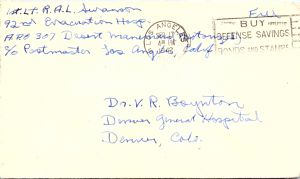 1st Lt. R.A.L. Swanson
Free
92nd Evacuation Hosp.
APO 307 Desert Maneuvers
c/o Postmaster Los Angeles Calif.
LOS ANGELES
BUY
DEFENSE SAVINGS
BONDS AND STAMPS
Dr. V. R. Boynton
Denver General Hospital
Denver, Colo.